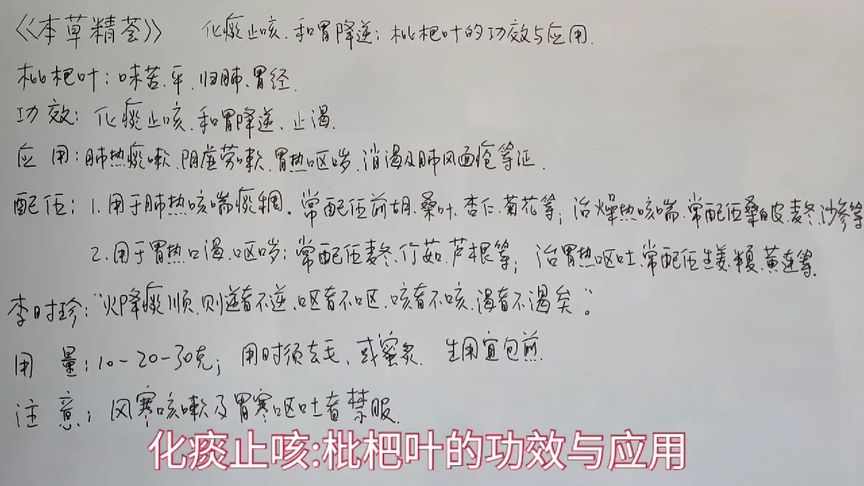 《本草精荟》 化痰止咳.和胃降逆:枇杷叶的功效与应用.
枇杷叶:味苦.平.归肺.胃经.
功效:化痰止咳.和胃降逆.止渴.
应用:肺热痰嗽.阴虚劳嗽.胃热呕哕.消渴及肺风面疮等证.
配伍:1.用于肺热咳喘痰稠.常配伍前胡.桑叶.杏仁.菊花等;治燥热咳喘.常配伍桑白皮.麦冬.沙参等
2.用于胃热口渴.呕哕:常配伍麦冬.竹茹.芦根等;治胃热呕吐.常配伍生姜.半夏.黄连等.
李时珍:"火降痰顺.则逆者不逆.呕者不呕.咳者不咳.渴者不渴矣"。
用量:10-20-30克;用时须去毛.或蜜炙.生用宜包煎.
注意:风寒咳嗽及胃寒呕吐者禁服.
化痰止咳:枇杷叶的功效与应用